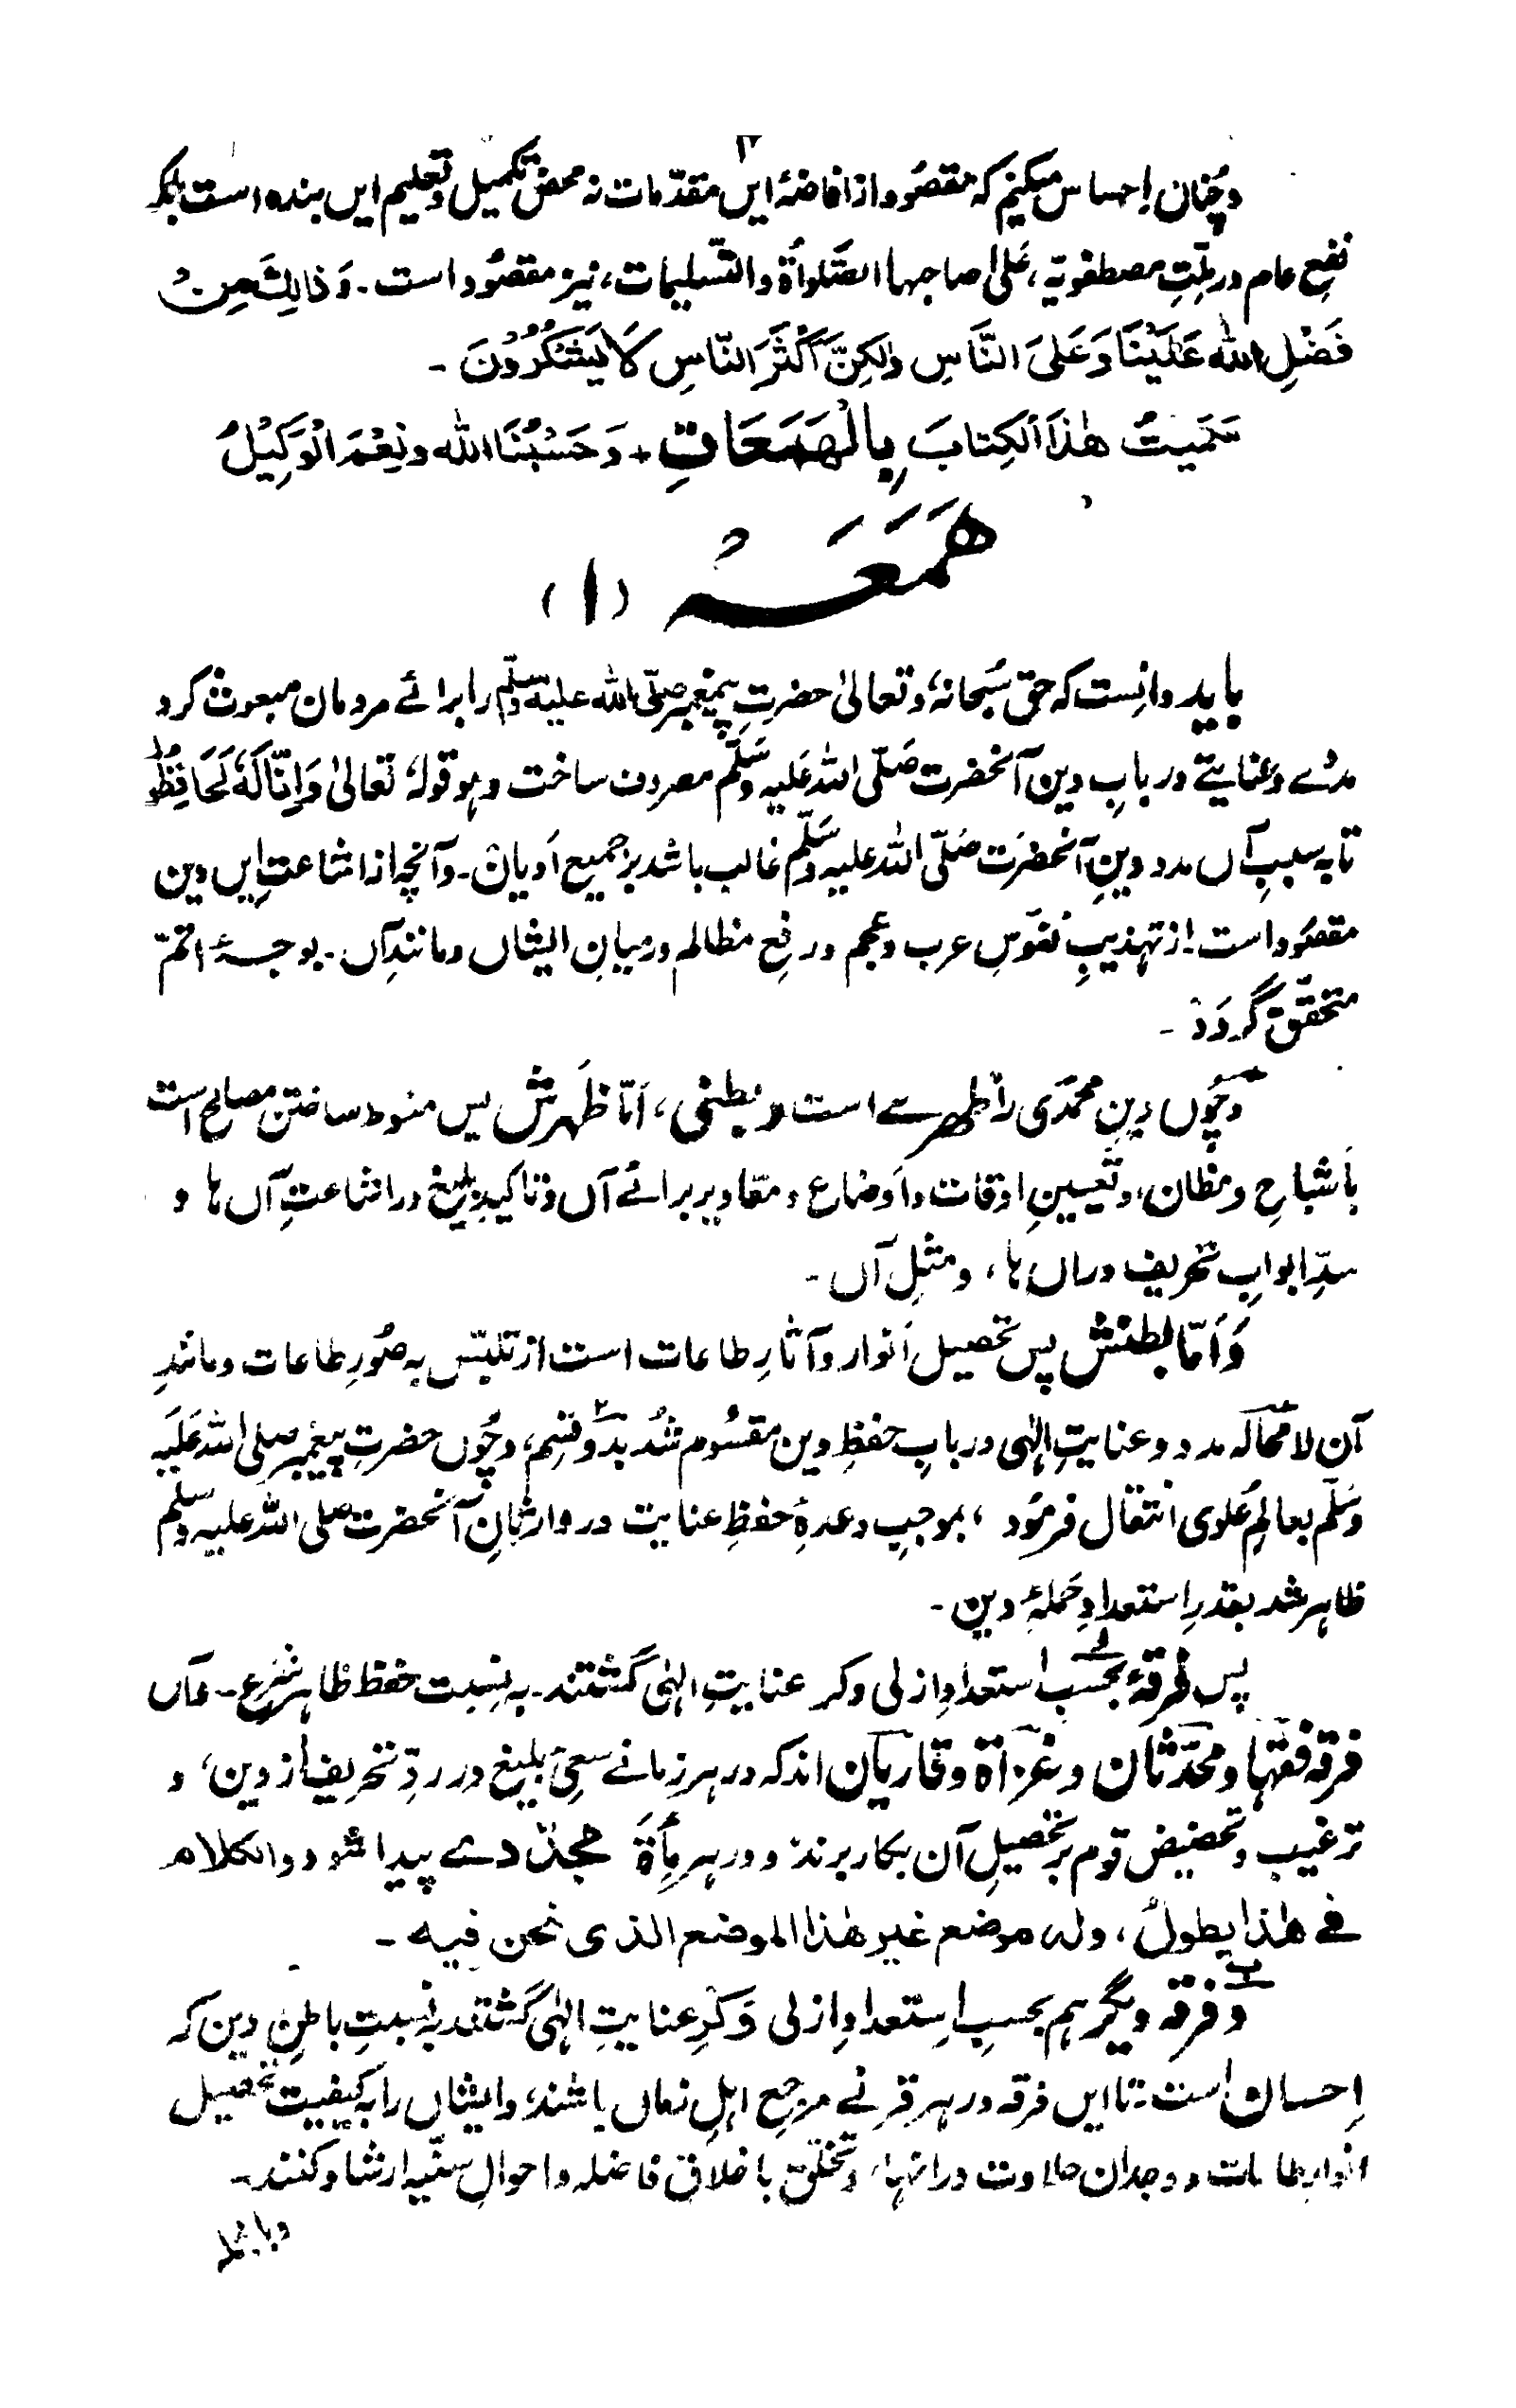 ۲
وچُنان اِحساس میکنم کہ مقصُود از افاضۂ ایں مقدّمات نہ محض تکمیل و تعلیم ایں بندہ است بلکہ
نفعِ عام در ملّتِ مصطفویّہ، عَلیٰ صاحبہا الصَّلواۃ والتّسلیمات، نیز مقصُود است۔ وَذالِكَ مِنْ
فَضْلِ اللّٰه عَلَيْنَا وَعَلَى النَّاسِ وَلٰكِنَّ اَكْثَرَ النَّاسِ لَا يَشْكُرُوْنَ ۔
سَمَّيتُ هٰذَا الْكِتابَ بِالْهَمَعَاتِ + وَحَسْبُنَا اللّٰه ونِعْمَ الْوَكِيْلُ
هَمَعَہ (۱)
باید دانِست کہ حق سُبحانہٗ وتعالیٰ حضرتِ پیغمبر صلّی اللّٰہ علیہ وسلّم را برائے مردمان مبعوث کرد
مددے وعنایتے در بابِ دینِ آنحضرت صَلّی اللّٰہ عَلیہ وسَلّم مصروف ساخت وہو قولہٗ تعالیٰ وَاِنَّا لَهٗ لَحَافِظُوْ
تا بہ سببِ آں مدد دینِ آنحضرَت صَلّی اللّٰہ علیہ وسَلّم غالب باشد بر جمیع اَدیان۔ وآنچہ از اشاعتِ ایں دین
مقصُود است: از تہذیبِ نفوسِ عرب وعجم ورفعِ مظالم درمیانِ ایشاں ومانندِ آں۔ بوجہۂ اتمّ
متحقّق گردَد ۔
وچُوں دینِ محمّدی را ظہرے است و بطنی، اَمّا ظَہرش پس منوط ساختن مصالح است
باَشباح ومظان، وتعیینِ اوقات واَوضاع ومقادیر برائے آں وتاکیدِ بلیغ در اشاعتِ آں ہا و
سدِّ ابوابِ تحریف دراں ہا، ومثلِ آں۔
وَاَمّا بطنش پس تحصیل اَنوار وآثارِ طاعات است از تلبّس بہ صُورِ طاعات ومانندِ
آن لامحالہ مدد وعنایتِ اِلٰہی در بابِ حفظِ دین مقسُوم شُد بدو قِسم، وچُوں حضرتِ پیغمبر صلی اللّٰہ عَلَیہ
وَسَلّم بعالمِ عُلوی انتقال فرمُود ، بموجبِ وعدۂ حفظِ عنایت در وارثانِ آنحضرت صلی اللّٰہ علیہ وسلّم
ظاہر شد بقدرِ اِستعدادِ حَملۂ دین ۔
پس فرقۂ بحَسب استعدادِ ازلی وکر عنایتِ الٰہی گشتند۔ بہ نِسبت حفظ ظاہر شرع۔ وآں
فرقہ فقہا ومحدّثان وغزاۃ وقاریان اند کہ در ہر زمانے سعیِ بلیغ در ردِّ تحریف از دین، و
ترغیب وتحضیض قوم بر تحصیلِ آن بکار برند و در ہر مِأۃَ مجدّدے پیدا شود والکلام
فے هٰذا یطولُ، وله موضع غیر هذا الموضع الذی نحن فیه ۔
وفرقہ دیگر ہم بحسبِ اِستعدادِ ازلی وَکرِ عنایتِ الٰہی گشتند بہ نِسبتِ باطنِ دین کہ
اِحسان است۔ تا ایں فرقہ در ہر قرنے مرجع اہلِ زماں باشند، وایشاں را بہ کیفیت تحصیل
انوارِ طاعات ووجدانِ حلاوت در انہا، وتخلّق باخلاقِ فاضلہ واحوالِ سنّیہ ارشاد کنند۔